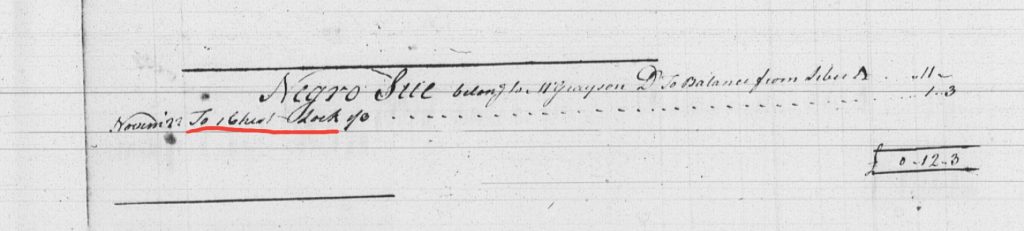 Negro Sue belong to W Grayson Dr To Balance from Liber B . . 11 -
Novemr 22 To 1 Chest Lock 1/3 . . . . . . . . . . 1 - 3
£ 0 - 12 - 3